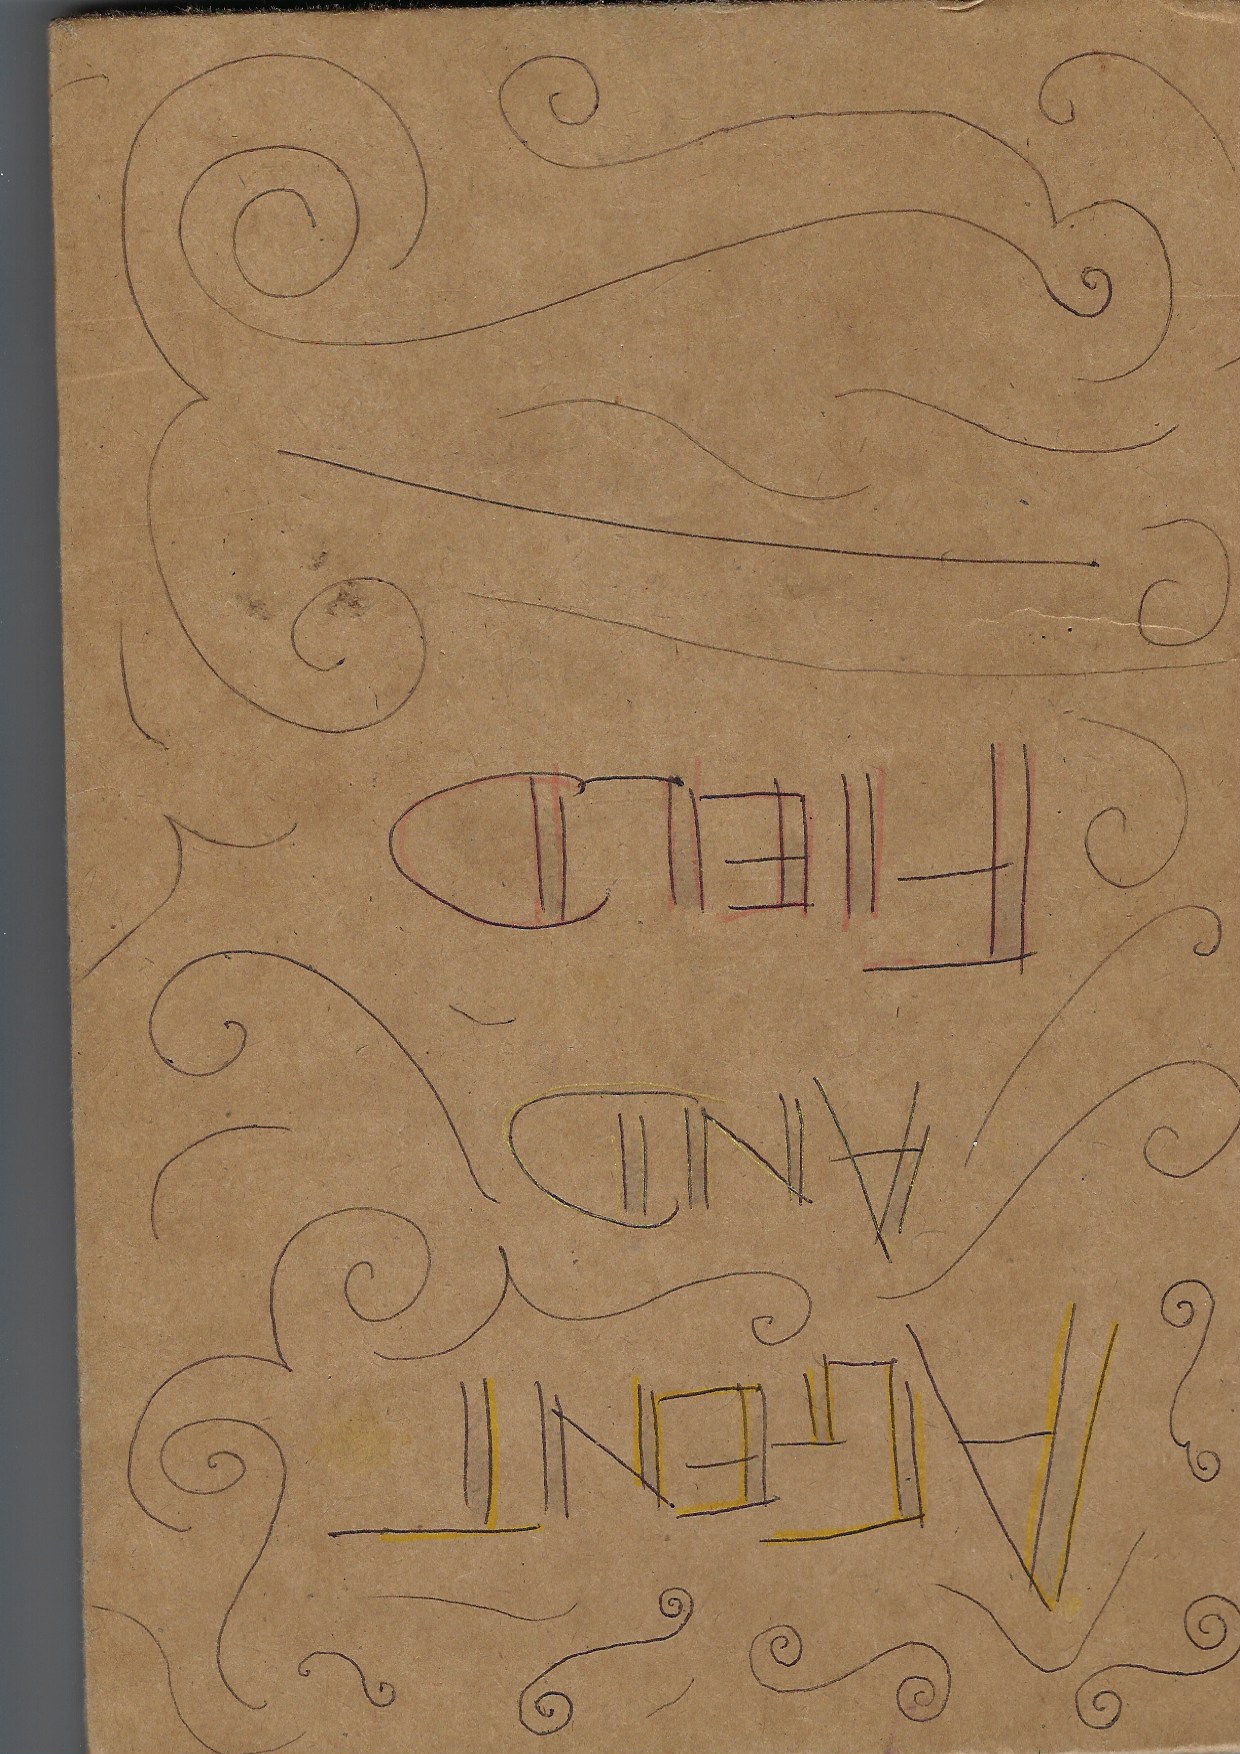 AGENT
AND
FIELD